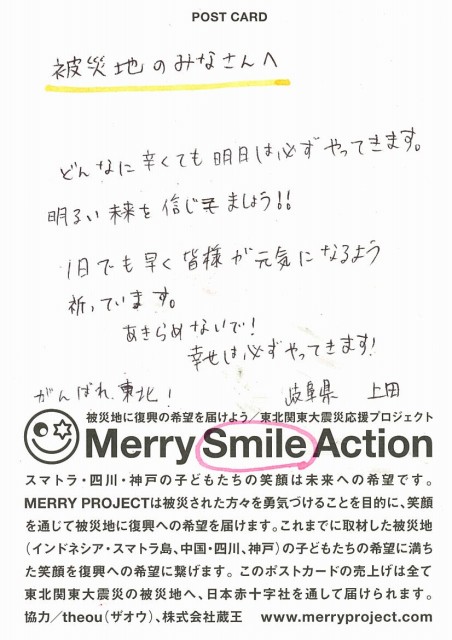 POST CARD
被災地のみなさんへ
どんなに辛くても明日は必ずやってきます。
明るい未来を信じましょう!!
1日でも早く皆様が元気になるよう
祈っています。
あきらめないで!
幸せは必ずやってきます!
がんばれ、東北! 岐阜県 上田
被災地に復興の希望を届けよう/東北関東大震災応援プロジェクト
Merry Smile Action
スマトラ・四川・神戸の子どもたちの笑顔は未来への希望です。
MERRY PROJECTは被災された方々を勇気づけることを目的に、笑顔
を通じて被災地に復興への希望を届けます。これまでに取材した被災地
(インドネシア・スマトラ島、中国・四川、神戸)の子どもたちの希望に満ち
た笑顔を復興への希望に繋げます。このポストカードの売上げは全て
東北関東大震災の被災地へ、日本赤十字社を通して届けられます。
協力/theou(ザオウ)、株式会社蔵王 www.merryproject.com